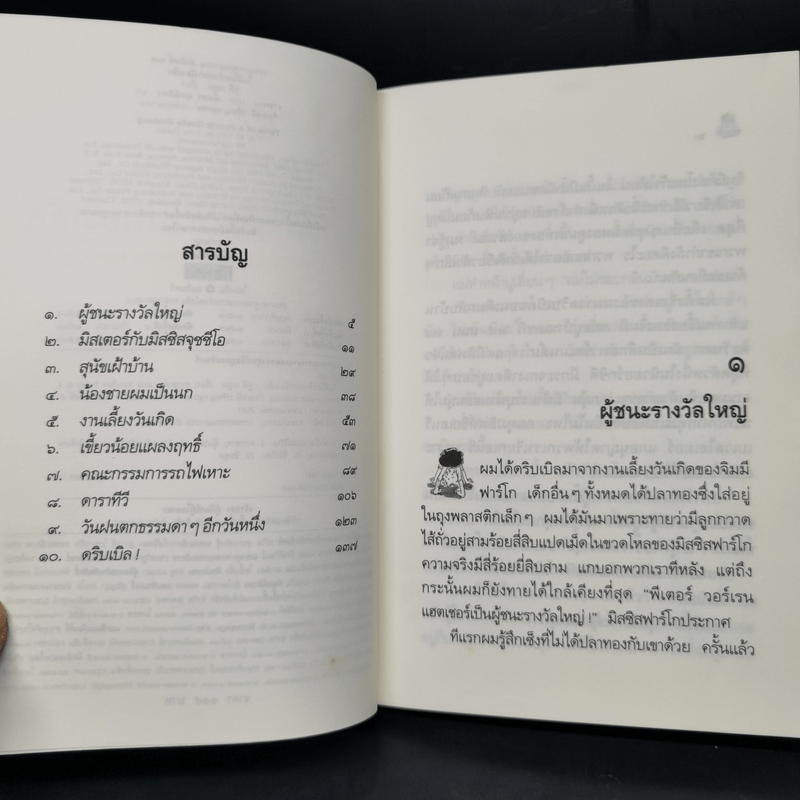 สารบัญ
๑. ผู้ชนะรางวัลใหญ่ ๕
๒. มิสเตอร์กับมิสซิสจุชซีโอ ๑๑
๓. สุนัขเฝ้าบ้าน ๒๙
๔. น้องชายผมเป็นนก ๓๘
๕. งานเลี้ยงวันเกิด ๕๓
๖. เขี้ยวน้อยแผลงฤทธิ์ ๗๑
๗. คณะกรรมการรถไฟเหาะ ๘๙
๘. ดาราทีวี ๑๐๖
๙. วันฝนตกธรรมดาๆ อีกวันหนึ่ง ๑๒๓
๑๐. ดริบเบิล! ๑๓๗
๑
ผู้ชนะรางวัลใหญ่
ผมได้ดริบเบิลมาจากงานเลี้ยงวันเกิดของจิมมี
ฟาร์โก เด็กอื่นๆ ทั้งหมดได้ปลาทองซึ่งใส่อยู่
ในถุงพลาสติกเล็กๆ ผมได้มันมาเพราะทายว่ามีลูกกวาด
ไส้ถั่วอยู่สามร้อยสี่สิบแปดเม็ดในขวดโหลของมิสซิสฟาร์โก
ความจริงมีสี่ร้อยยี่สิบสาม แกบอกพวกเราทีหลัง แต่ถึง
กระนั้นผมก็ยังทายได้ใกล้เคียงที่สุด "พีเตอร์ วอร์เรน
แฮตเชอร์เป็นผู้ชนะรางวัลใหญ่!" มิสซิสฟาร์โกประกาศ
ทีแรกผมรู้สึกเซ็งที่ไม่ได้ปลาทองกับเขาด้วย ครั้นแล้ว